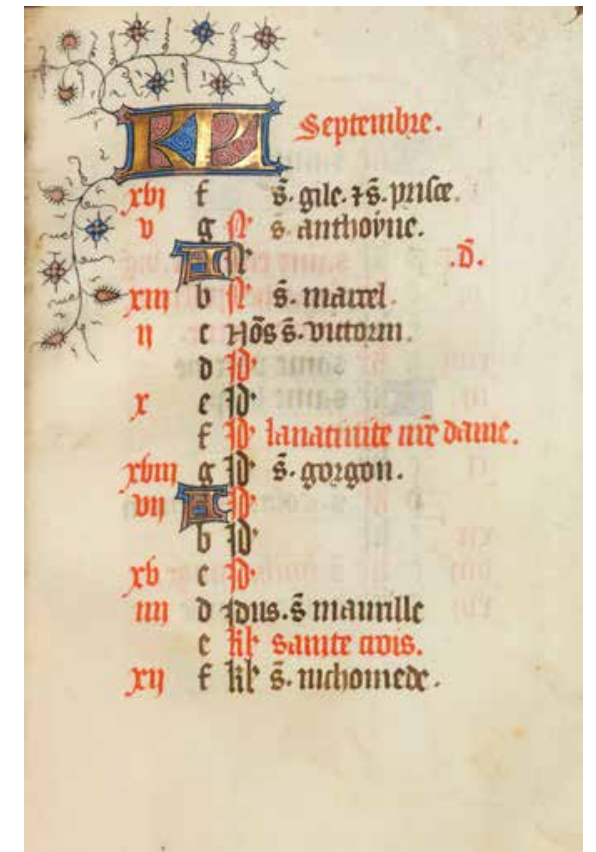 KL Septembre.
xvi f s̄. gile. ⁊ s̄. prisce.
v g N̄ s̄. anthoine.
A N̄ .D̄.
xiii b N̄ s̄. marcel.
ii c Nōs s̄. victorin.
d Id
x e Id
f Id la nativite nr̄e dame.
xviii g Id s̄. gorgon.
vii A Id
b Id
xv c Id
iiii d Idus. s̄ maurille
e kl sainte crois.
xii f kl s̄. nichomede.